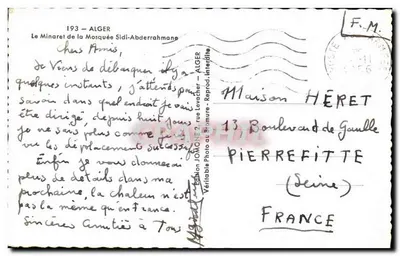 193 — ALGER
Le Minaret de la Mosquée Sidi-Abderrahmane
Chers Amis,
Je Viens de débarquer il y a
quelques instants, j'attends pour
savoir dans quel endroit je vais
être dirigé, depuis huit jours
je ne sais plus comme je
vu les déplacement successifs
Enfin je vous donnerai
plus de détails dans ma
prochaine, la chaleur n'est
pas la même qu'en France.
Sincères Amitiés à Tous
ALGER
Véritable Photo au Bromure - Reprod. interdite
F.M.
Maison HÉRET
13 Boulevard de Gaulle
PIERREFITTE
(Seine)
FRANCE